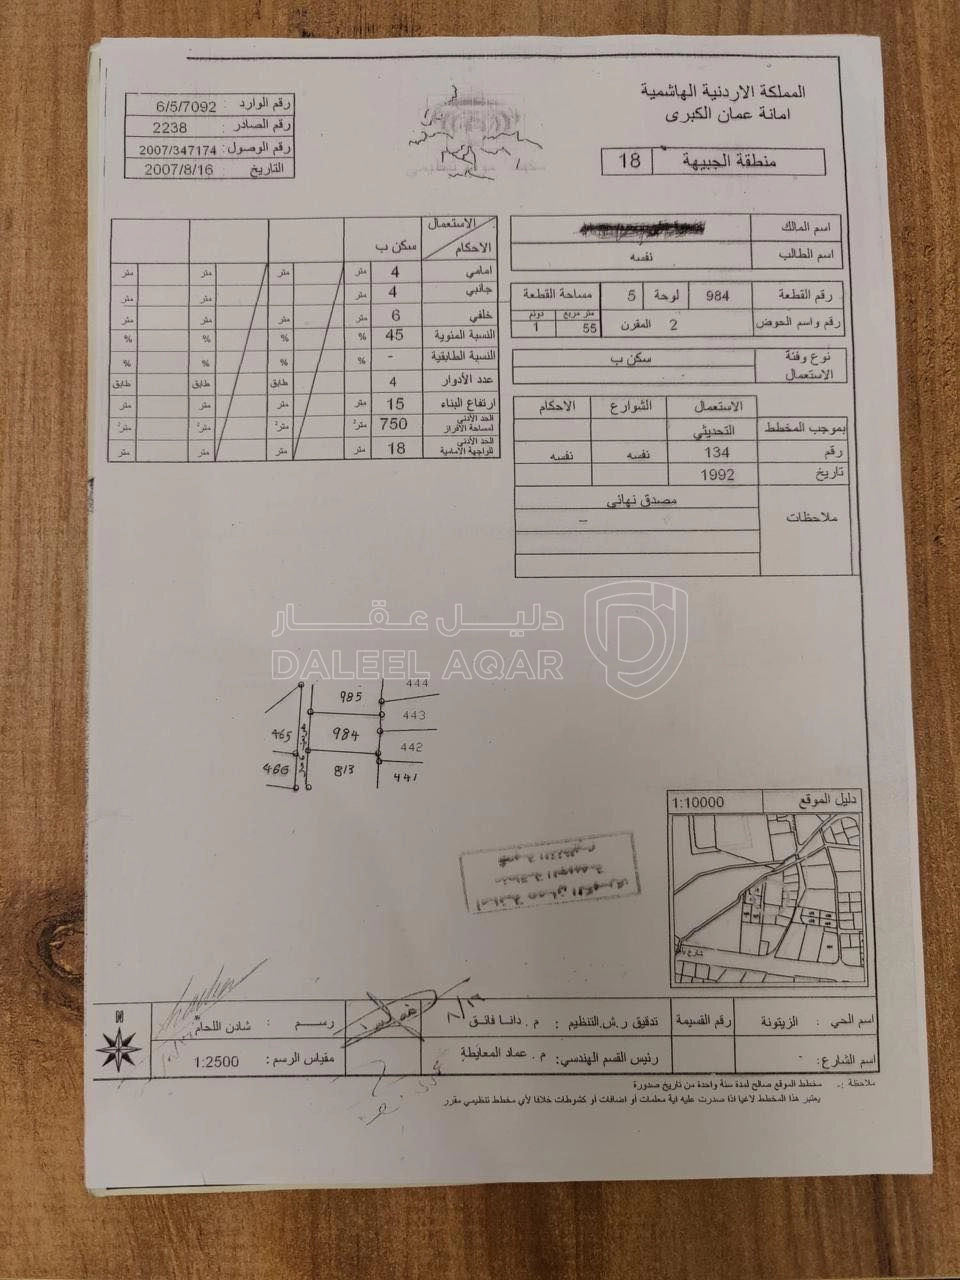 المملكة الاردنية الهاشمية
امانة عمان الكبرى
منطقة الجبيهة 18
رقم الوارد : 6/5/7092
رقم الصادر : 2238
رقم الوصول : 2007/347174
التاريخ : 2007/8/16
اسم المالك
اسم الطالب نفسه
رقم القطعة 984 لوحة 5 مساحة القطعة
رقم واسم الحوض 2 المقرن متر مربع 55 دونم 1
نوع وفئة الاستعمال سكن ب
الاستعمال الشوارع الاحكام
بموجب المخطط التحديثي
رقم 134 نفسه نفسه
تاريخ 1992
ملاحظات مصدق نهائي
–
الاستعمال
الاحكام سكن ب
امامي 4 متر متر متر متر
جانبي 4 متر متر متر
خلفي 6 متر متر متر متر
النسبة المئوية 45 % % % %
النسبة الطابقية - % % % %
عدد الأدوار 4 طابق طابق طابق
ارتفاع البناء 15 متر متر متر متر
الحد الأدنى لمساحة الافراز 750 متر² متر² متر² متر²
الحد الأدنى للواجهة الأمامية 18 متر متر متر متر
دليل عقار
DALEEL AQAR
444
985
443
465
984
442
466
813
441
دليل الموقع 1:10000
امانة عمان الكبرى
منطقة الجبيهة
اسم الحي : الزيتونة
رقم القسيمة
تدقيق ر.ش.التنظيم : م. دانا فائق
رسم : شادن اللحام
اسم الشارع : -
رئيس القسم الهندسي : م. عماد المعايطة
مقياس الرسم : 1:2500
N
ملاحظة :- مخطط الموقع صالح لمدة سنة واحدة من تاريخ صدورة
يعتبر هذا المخطط لاغيا اذا صدرت عليه اية معلمات أو اضافات أو كشوطات خلافا لأي مخطط تنظيمي مقرر